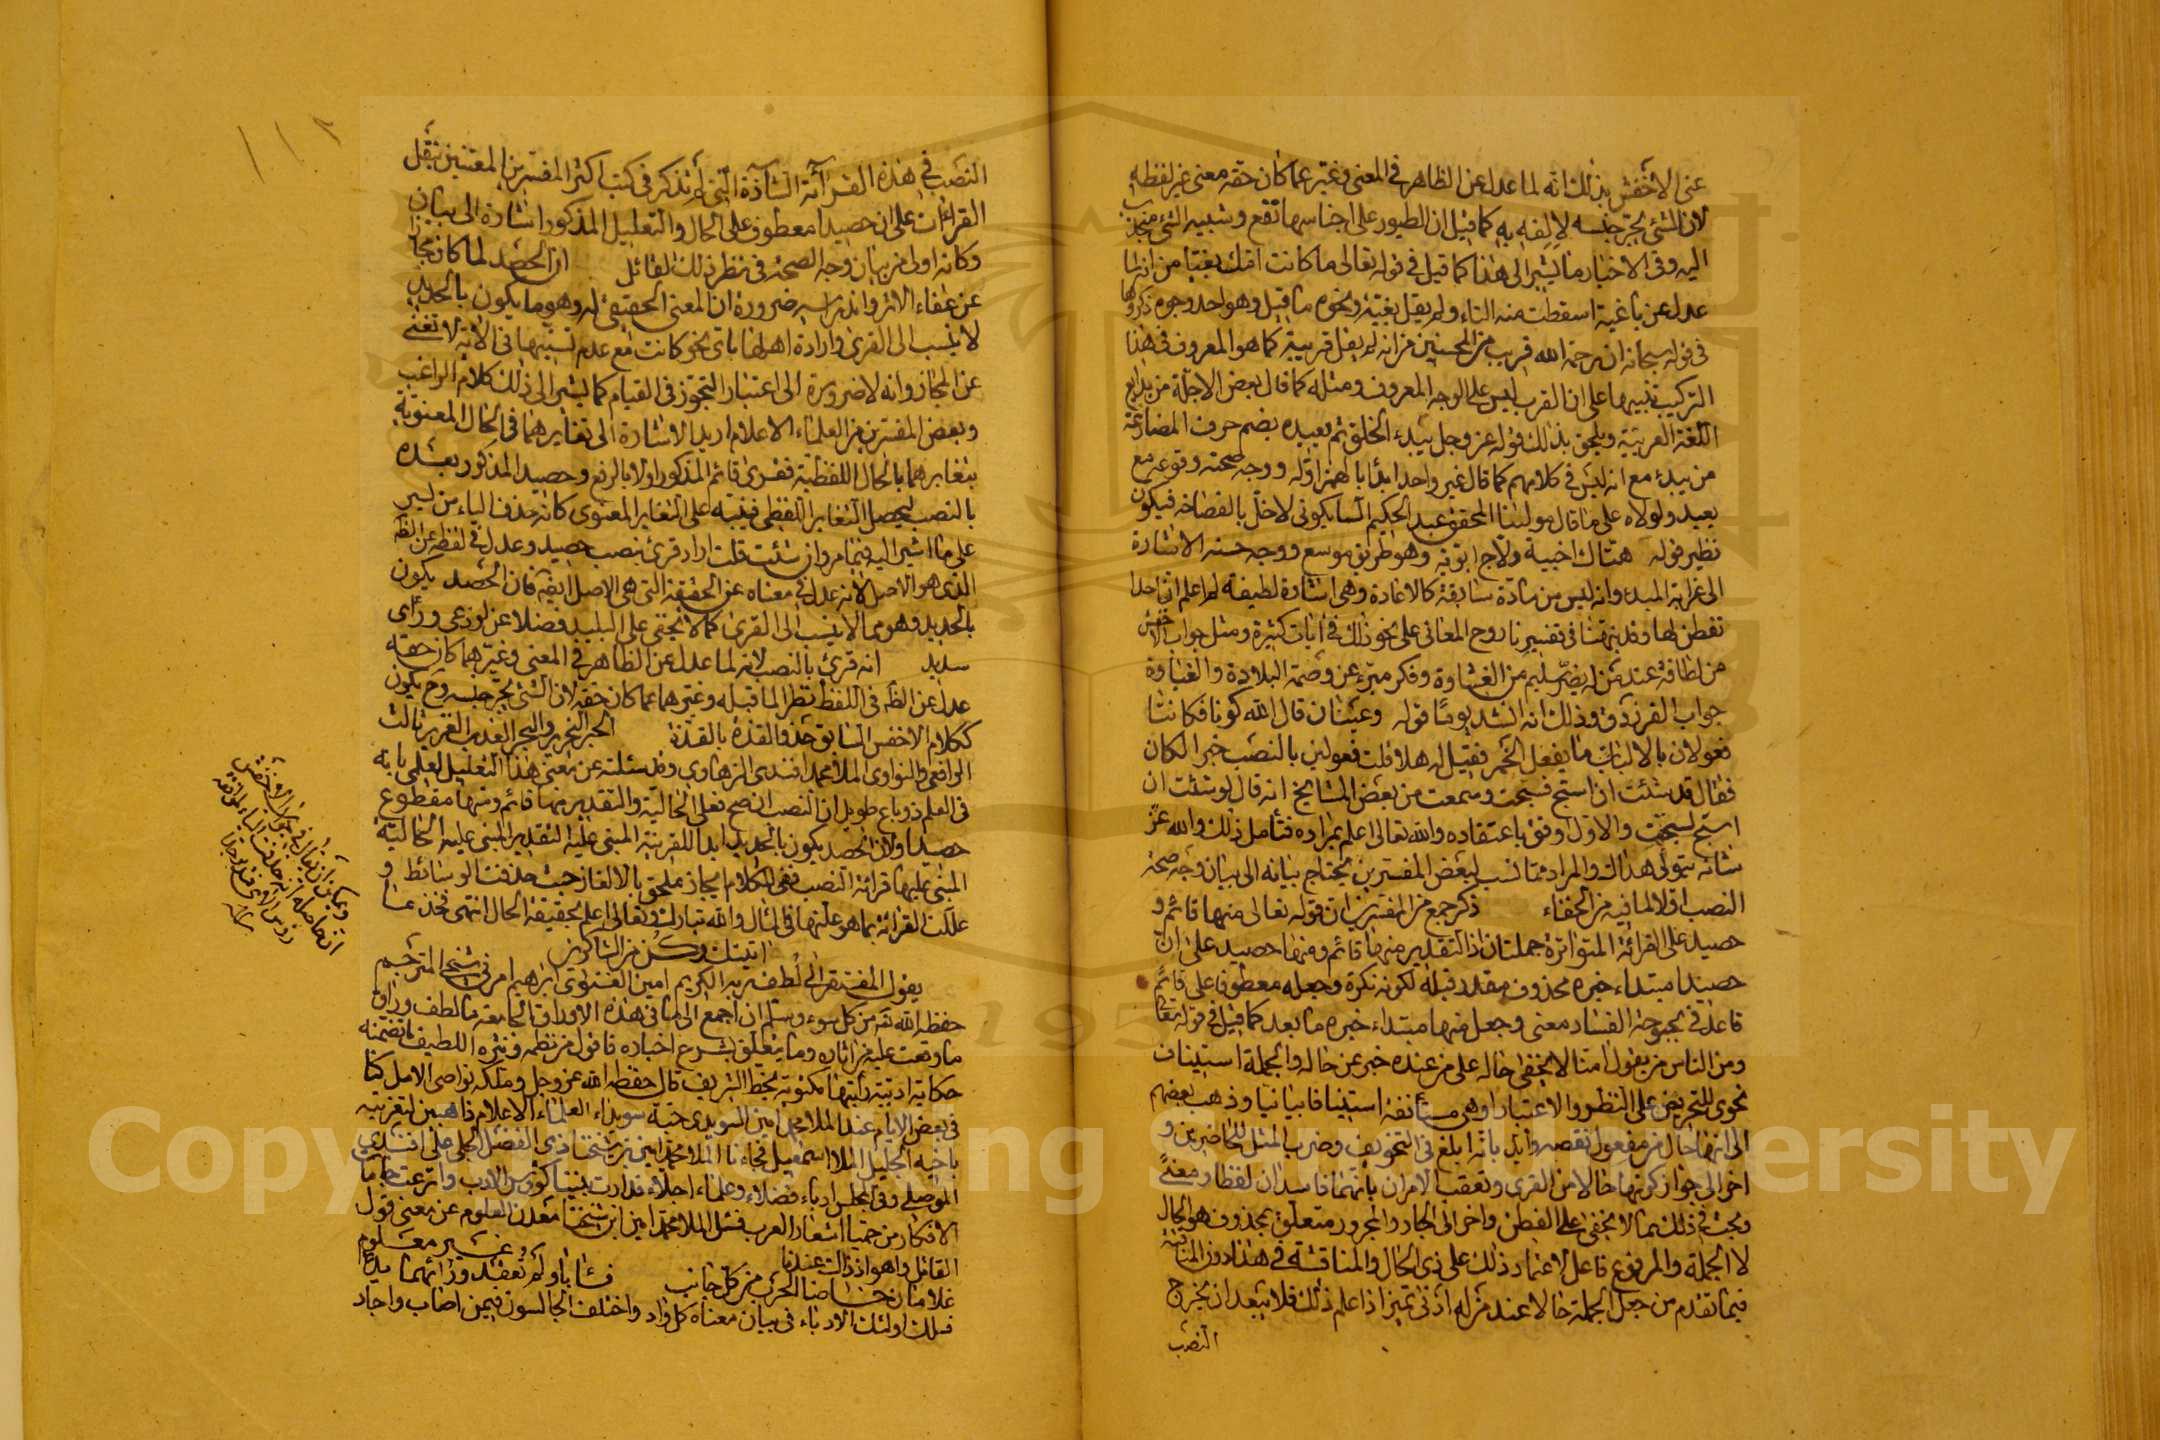 عنى الاخفش بذلك انه لما عدل عن الظاهر في المعنى وغير عما كان حقه معنى غير لفظه
لان الشئ يجر جنسه لإلفه به كما قيل ان الطيور على اجناسها تقع وشبيه الشئ منجذب
اليه وفي الاخبار ما يشير الى هذا كما قيل في قوله تعالى ما كانت امك بغيا من انه لما
عدل عن باغية اسقطت منه التاء ولم يقل بغية ونحوه ما قيل وهو احد وجوه ذكروها
في قوله سبحانه ان رحمة الله قريب من المحسنين من انه لم يقل قريبة كما هو المعروف في هذا
التركيب تنبيها على ان القرب ليس على الوجه المعروف ومثله كما قال بعض الاجلة من بدايع
اللغة العربية ويلحق بذلك قوله عز وجل يبدء الخلق ثم يعيده بضم حرف المضارعة
من يبدء مع انه ليس في كلامهم كما قال غير واحد ابدأ بالهمز اوله ووجه صحته وقوعه مع
يعيد ولولاه على ما قال مولينا المحقق عبد الحكيم السيالكوتي لاخل بالفصاحة فيكون
نظير قوله هتاك اخبية ولاج ابوبة وهو طريق موسع ووجه حسنه الاشارة
الى غرابة المبدء وانه ليس من مادة سابقة كالاعادة وهي اشارة لطيفة لم اعلم ان احدا
تفطن لها وقد نبهتنا في تفسيرنا روح المعاني على نحو ذلك في ايات كثيرة ومثل جواب الاخفش
من لطافة عند من له بصر سليم من الغشاوة وفكر مبرء عن وصمة البلادة والغباوة
جواب الفرزدق وذلك انه انشد يوما قوله وعينان قال الله كونا فكانتا
فعولان بالالباب ما يفعل الخمر فقيل له هلا قلت فعولين بالنصب خبرا لكان
فقال قد شئت ان اسبح فسبحت وسمعت من بعض المشايخ انه قال لو شئت ان
اسبح لسبحت والاول اوفق باعتقاده والله تعالى اعلم بمراده فتأمل ذلك والله عز
شانه يتولى هداك والمراد مما نسب لبعض المفسرين يحتاج بيانه الى بيان وجه صحة
النصب اولا لما فيه من الخفاء ذكر جمع من المفسرين ان قوله تعالى منها قائم و
حصيد على القرائة المتواترة جملتان اذ التقدير منها قائم ومنها حصيد على ان
حصيدا مبتداء خبره محذوف مقدر قبله لكونه نكرة وجعله معطوفا على قائم
قاعد في بحبوحة الفساد معنى وجعل منها مبتداء خبره ما بعد كما قيل في قوله تعالى
ومن الناس من يقول امنا لا يخفى حاله على من عنده خبر عن حاله والجملة استيناف
نحوي للتحريض على النظر والاعتبار او هي مستأنفة استينافا بيانيا وذهب بعضهم
الى انها حال من مفعول نقصه وايد بانه ابلغ في التخويف وضرب المثل للحاضرين و
اخر الى جواز كونها حالا من القرى وتعقب الامران بانهما فاسدان لفظا ومعنى
وبحث في ذلك بما لا يخفى على الفطن واخر الى ان الجار والمجرور متعلق بمحذوف هو الحال
لا الجملة والمرفوع فاعل لاعتماد ذلك على ذي الحال والمناقشة في هذا دون المناقشة
فيما تقدم من جعل الجملة حالا عند من له ادنى تميز اذا علم ذلك فلا يبعد ان يخرج
النصب
النصب في هذه القرائة الشاذة التي لم تذكر في كتب اكثر المفسرين المعتنين بنقل
القراءات على ان حصيدا معطوف على الحال والتعليل المذكور اشارة الى بيان
وكانه اولى من بيان وجه الصحة في نظر ذلك القائل ان الحصد لما كان مجازا
عن عفاء الاثر واندراسه ضرورة ان المعنى الحقيقي له وهو ما يكون بالحديد
لا ينسب الى القرى وارادة اهلها باي نحو كانت مع عدم تسببها في الاية لا تغني
عن المجاز وانه لا ضرورة الى اعتبار التجوز في القيام كما يشير الى ذلك كلام الراغب
وبعض المفسرين من العلماء الاعلام اريد الاشارة الى تغايرهما في الحال المعنوية
بتغايرهما بالحال اللفظية فقرئ قائم المذكور اولا بالرفع وحصيد المذكور بعده
بالنصب ليحصل التغاير اللفظي فينبه على التغاير المعنوي كانه حذف الياء من يسر
على ما اشير اليه فيما مر وان شئت قلت اراد قرئ بنصب حصيد وعدل في لفظه عن الظاهر
الذي هو الاصل لانه عدل في معناه عن الحقيقة التي هي الاصل ايضا فان الحصد يكون
بالحديد وهو مما لا ينسب الى القرى كما لا يخفى على البليد فضلا عن لوذعي ورأى
سديد انه قرئ بالنصب لانه لما عدل عن الظاهر في المعنى وغير هما كان حقه
عدل عن الظاهر في اللفظ نظرا لما قبله وغير هما عما كان حقه لان الشئ يجر جنسه وح يكون
ككلام الاخفش السابق حذو القذة بالقذة الحبر النحرير والبحر الغدير ثالث
الرافعي والنواوي الملا محمد افندي الزهاوي وقد سئلته عن معنى هذا التعليل لعلمي بانه
في العلم ذو باع طويل ان النصب ان صح فعلى الحالية والتقدير منها قائم ومنها مقطوع
حصيدا ولان الحصد يكون بالحديد ابدا للقرينة المبنى عليه التقدير المبنى عليه الحالية
المبنى عليها قرائة النصب ففي الكلام ايجاز ملحق بالالغاز حيث حذفت الوسائط و
عللت القرائة بما هو علتها في المآل والله تبارك وتعالى اعلم بحقيقة الحال انتهى فخذ ما
اتيتك وكن من الشاكرين
يقول المفتقر الى لطف ربه الكريم امين الفتوى ابراهيم امرني شيخي المترجم
حفظه الله تعالى من كل سوء وسلم ان اجمع الى ما في هذه الاوراق الجامعة ما لطف وراق
ما وقعت عليه من اثاره وما يتعلق بشرع اخباره فاقول من نظمه ونثره اللطيف ما تضمنه
حكاية ادبية رأيتها مكتوبة بخطه الشريف قال حفظه الله عز وجل وملكه نواصي الامل كنا
في بعض الايام عند الملا محمد امين السويدي حبة سويداء العلماء الاعلام ذاهبين لتعزيته
باخيه الجليل الملا اسمعيل فجاءنا الملا محمد امين بن شيخنا ذي الفضل الجلي علي افندي
الموصلي وفي المجلس ادباء فضلاء وعلماء اجلاء فدارت بيننا كؤوس الادب واترعت جاما
الافكار من حميا اشعار العرب فسئل الملا محمد امين ابن شيخنا معدن العلوم عن معنى قول
القائل وما هو اذ ذاك عندنا غير معلوم
غلامان خاضا الحرب من كل جانب فئابا ولم تعقد ورائهما يد
فسلك اولئك الادباء في بيان معناه كل واد واختلف الجالسون فيمن اصاب واجاد